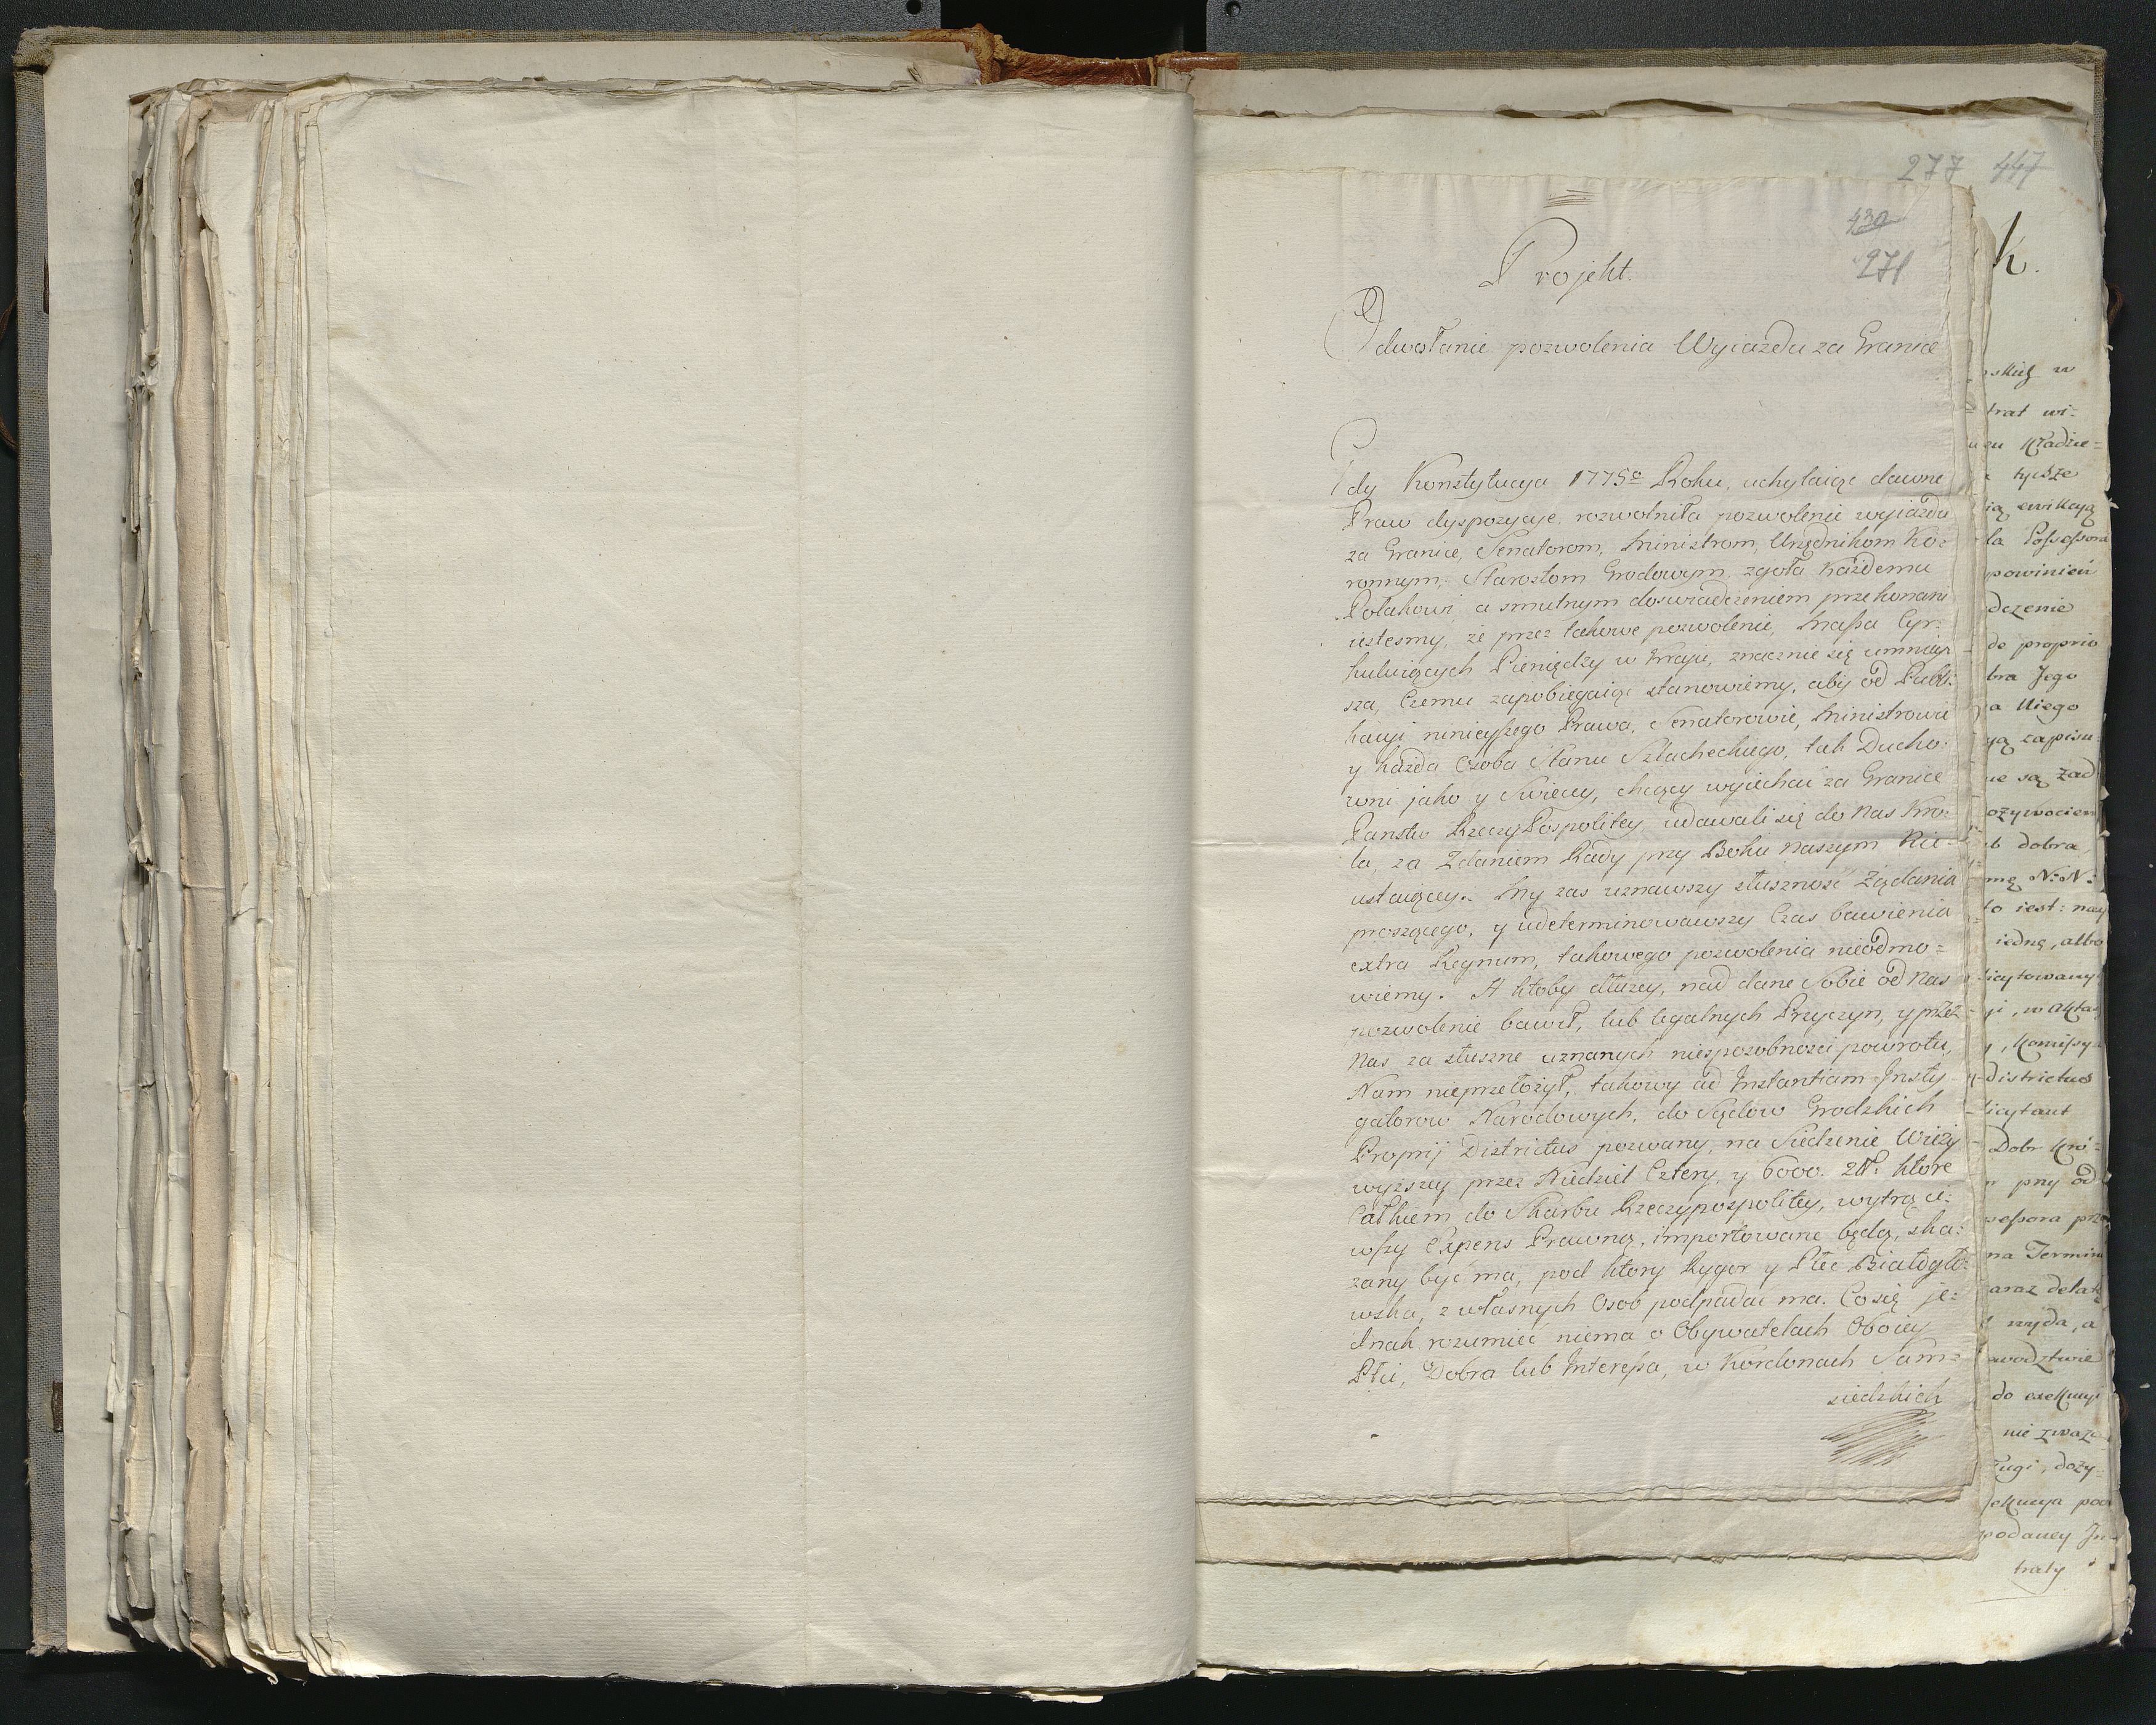 277 447
432
271
Projekt.
Odwołanie pozwolenia Wyiazdu za Granice
Gdy Konstytucya 1775º Roku, uchylaiąc dawne
Praw dyspozycye, rozwolniła pozwolenie wyiazdu
za Granice, Senatorom, Ministrom, Urzędnikom Ko=
ronnym, Starostom Grodowym zgoła każdemu
Polakowi, a smutnym doswiadczeniem przekonani
iestesmy, że przez takowe pozwolenie, Massa Cyr=
kuluiących Pieniędzy w Kraju, znacznie się umniey
sza, Czemu zapobiegaiąc stanowiemy, aby od Publi=
kacyi ninieyszego Prawa, Senatorowie, Ministrowie
y każda Osoba Stanu Szlacheckiego, tak Ducho=
wni jako y Swieccy, chcący wyiechać za Granice
Panstw RzeczyPospolitey udawali się do Nas Kro=
la, za Zdaniem Rady przy Boku Naszym Nie=
ustaiącey. My zas uznawszy słusznosć Żądania
proszącego, y udeterminowawszy Czas bawienia
extra Regnum, takowego pozwolenia nieodmo=
wiemy. A ktoby dłużey, nad dane Sobie od Nas
pozwolenie bawił, lub legalnych Przyczyn, y przez
Nas za słuszne uznanych niesposobnosci powrotu,
Nam nieprzełożył, takowy ad Instantiam Insty
gatorow Narodowych, do Sądow Grodzkich
Proprij Districtus pozwany, na Siedzenie Wieży
wyższey przez Niedziel Cztery, y 6000. Zł: ktore
Całkiem do Skarbu Rzeczypospolitey, wytrąci=
wszy Expens Prawną, importowane będą, ska=
zany być ma, pod ktory Rygor y Płeć Białogło=
wska, z własnych Osob podpadać ma. Co się je=
dnak rozumieć niema o Obywatelach Oboiey
Płci, Dobra lub Interessa, w Kordonach Sąm=
siedzkich
k.
trat wi=
kładzie=
tysże
ewikcyą
la Possessora
powinien
dczenie
de proprio
bra Jego
a Niego
zapisu=
są żad
ożywociem
dobra
mę N: N:
to iest: nay
iedną, albo
licytowany
w Aktac
, Komissy
districtus
licytant
Dobr Kró=
przy od
sessora prze
na Termin
zaraz
wyda, a
wodztwie
do exekucyi
nie zważa
ługi, doży=
podaney In
traty